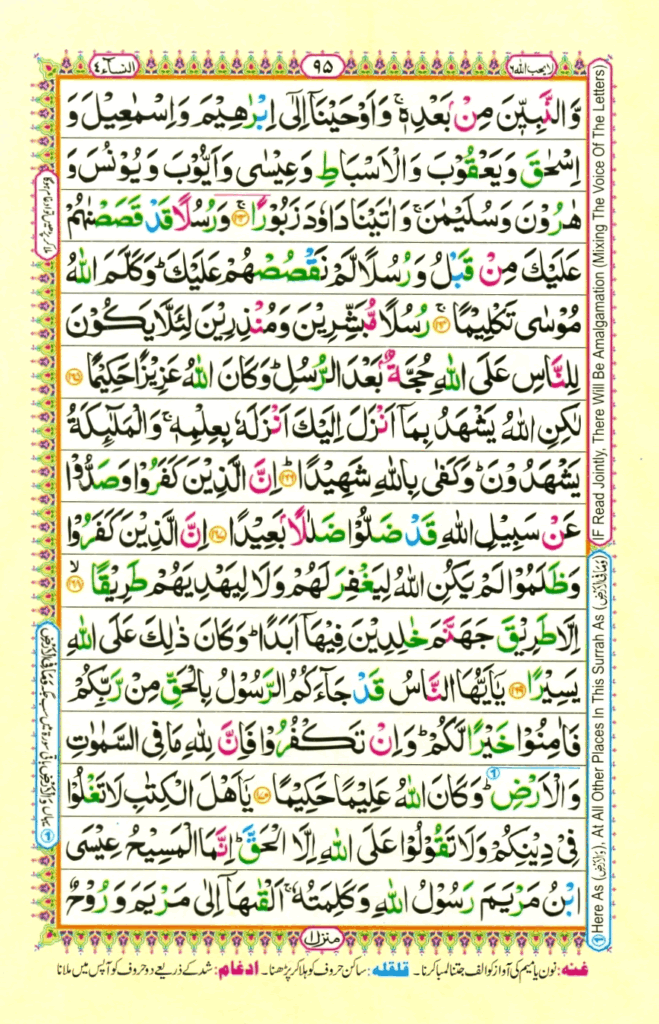 النساء ٤
٩٥
لا یحب اللہ ٦
وَّالنَّبِيّٖنَ مِنْۢ بَعْدِهٖ ۚ وَاَوْحَيْنَاۤ اِلٰۤى اِبْرٰهِيْمَ وَاِسْمٰعِيْلَ وَ
اِسْحٰقَ وَيَعْقُوْبَ وَالْاَسْبَاطِ وَعِيْسٰى وَاَيُّوْبَ وَيُوْنُسَ وَ
هٰرُوْنَ وَسُلَيْمٰنَ ۚ وَاٰتَيْنَا دَاوٗدَ زَبُوْرًا ۚ ﴿١٦٣﴾ وَرُسُلًا قَدْ قَصَصْنٰهُمْ
عَلَيْكَ مِنْ قَبْلُ وَرُسُلًا لَّمْ نَقْصُصْهُمْ عَلَيْكَ ؕ وَكَلَّمَ اللّٰهُ
مُوْسٰى تَكْلِيْمًا ۚ ﴿١٦٤﴾ رُسُلًا مُّبَشِّرِيْنَ وَمُنْذِرِيْنَ لِئَلَّا يَكُوْنَ
لِلنَّاسِ عَلَى اللّٰهِ حُجَّةٌۢ بَعْدَ الرُّسُلِ ؕ وَكَانَ اللّٰهُ عَزِيْزًا حَكِيْمًا ﴿١٦٥﴾
لٰكِنِ اللّٰهُ يَشْهَدُ بِمَاۤ اَنْزَلَ اِلَيْكَ اَنْزَلَهٗ بِعِلْمِهٖ ۚ وَالْمَلٰٓئِكَةُ
يَشْهَدُوْنَ ؕ وَكَفٰى بِاللّٰهِ شَهِيْدًا ؕ ﴿١٦٦﴾ اِنَّ الَّذِيْنَ كَفَرُوْا وَصَدُّوْا
عَنْ سَبِيْلِ اللّٰهِ قَدْ ضَلُّوْا ضَلٰلًاۢ بَعِيْدًا ﴿١٦٧﴾ اِنَّ الَّذِيْنَ كَفَرُوْا
وَظَلَمُوْا لَمْ يَكُنِ اللّٰهُ لِيَغْفِرَ لَهُمْ وَلَا لِيَهْدِيَهُمْ طَرِيْقًا ۙ ﴿١٦٨﴾
اِلَّا طَرِيْقَ جَهَنَّمَ خٰلِدِيْنَ فِيْهَاۤ اَبَدًا ؕ وَكَانَ ذٰلِكَ عَلَى اللّٰهِ
يَسِيْرًا ﴿١٦٩﴾ يٰۤاَيُّهَا النَّاسُ قَدْ جَآءَكُمُ الرَّسُوْلُ بِالْحَقِّ مِنْ رَّبِّكُمْ
فَاٰمِنُوْا خَيْرًا لَّكُمْ ؕ وَاِنْ تَكْفُرُوْا فَاِنَّ لِلّٰهِ مَا فِى السَّمٰوٰتِ
وَالْاَرْضِ ؕ وَكَانَ اللّٰهُ عَلِيْمًا حَكِيْمًا ﴿١٧٠﴾ يٰۤاَهْلَ الْكِتٰبِ لَا تَغْلُوْا
فِىْ دِيْنِكُمْ وَلَا تَقُوْلُوْا عَلَى اللّٰهِ اِلَّا الْحَقَّ ؕ اِنَّمَا الْمَسِيْحُ عِيْسَى
ابْنُ مَرْيَمَ رَسُوْلُ اللّٰهِ وَكَلِمَتُهٗ ۚ اَلْقٰىهَاۤ اِلٰى مَرْيَمَ وَرُوْحٌ
منزل ۱
غنه: نون یا میم کی آواز کو الف جتنا لمبا کرنا۔ قلقله: ساکن حروف کو ہلا کر پڑھنا۔ ادغام: شد کے ذریعے دو حروف کو آپس میں ملانا
(IF Read Jointly, There Will Be Amalgamation (Mixing The Voice Of The Letters)
١ Here As (وَالْاَرْضِ), At All Other Places In This Surrah As (وَمَا فِى الْاَرْضِ)